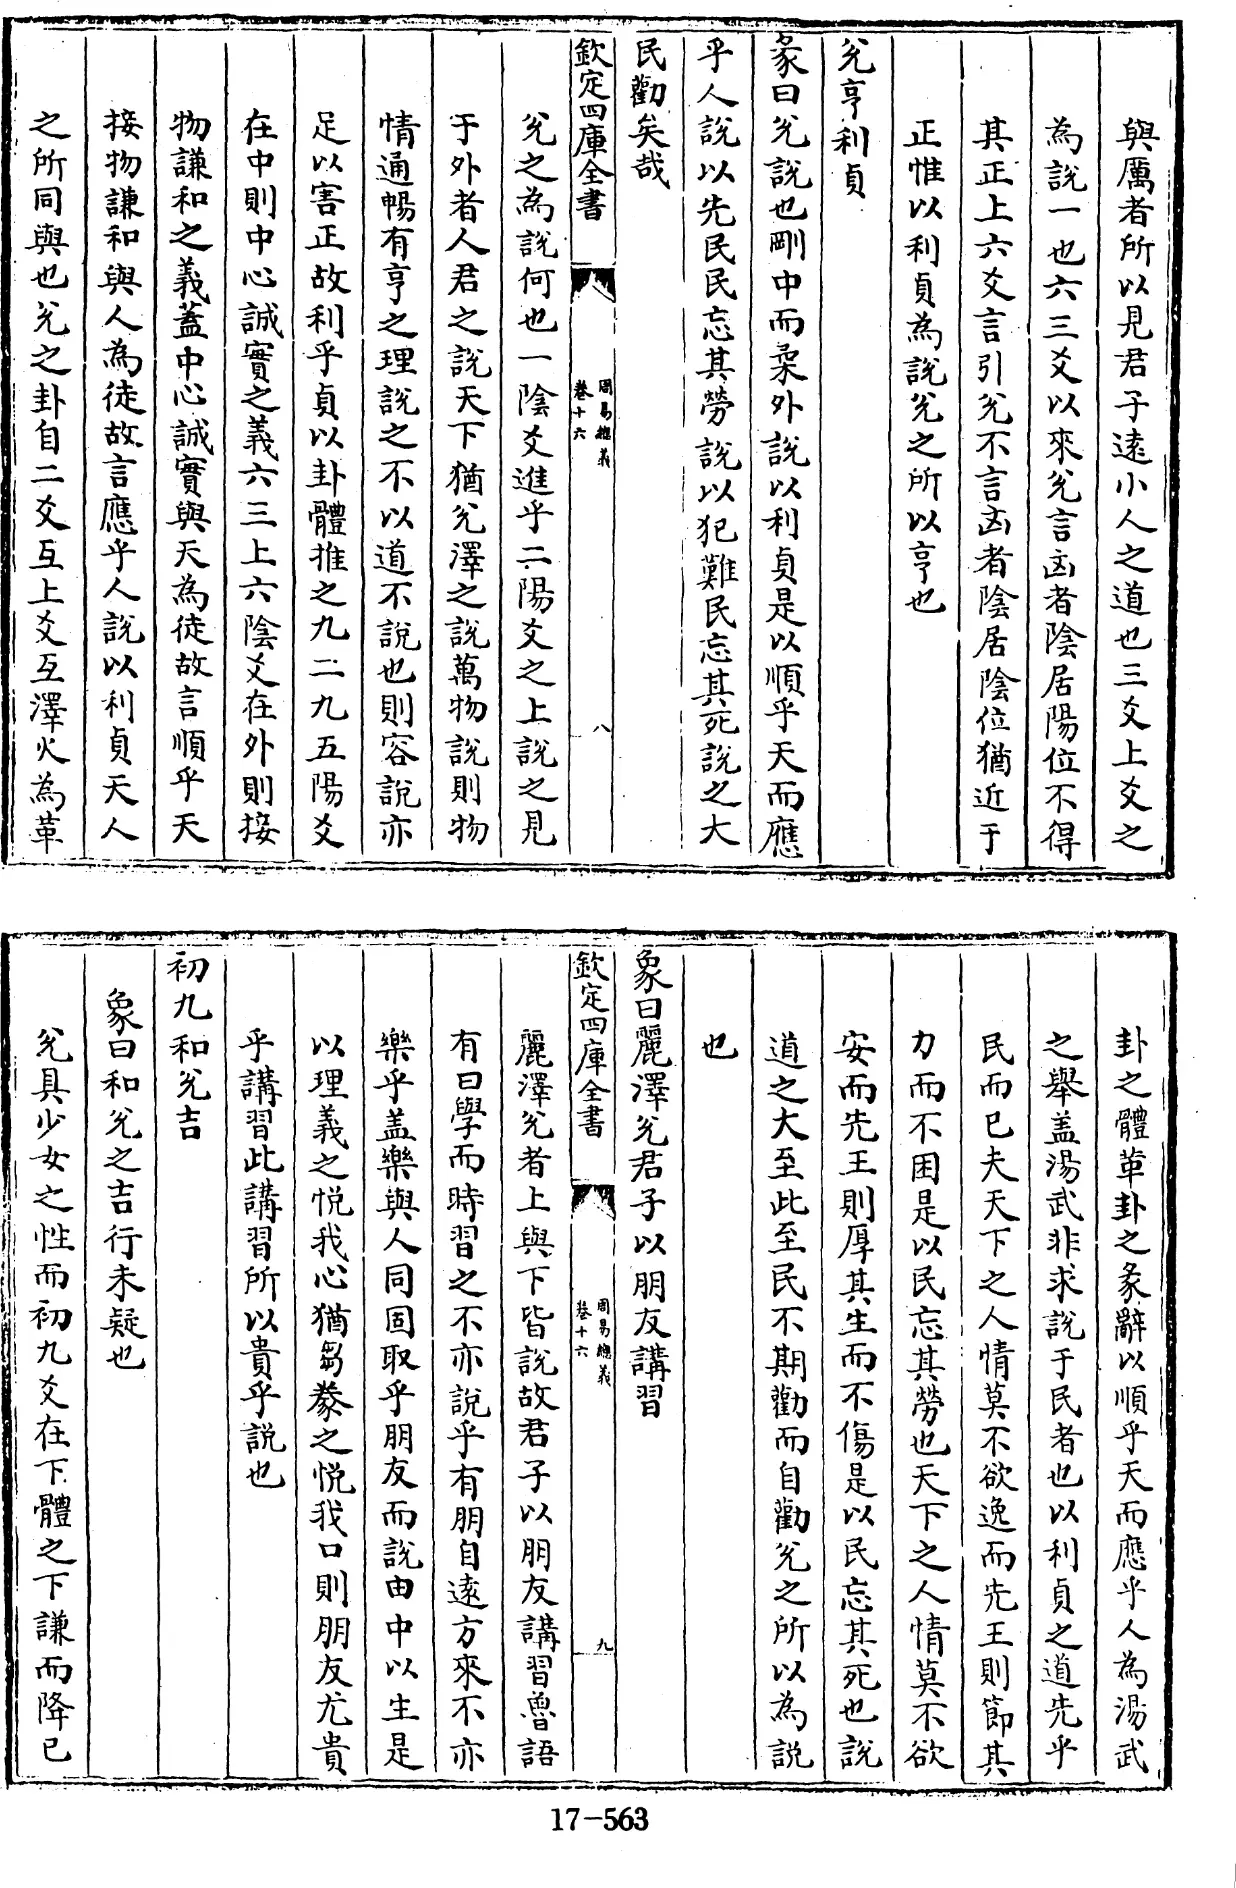 與厲者所以見君子遠小人之道也三爻上爻之
為說一也六三爻以來兊言凶者陰居陽位不得
其正上六爻言引兊不言凶者陰居陰位猶近于
正惟以利貞為說兊之所以亨也
兊亨利貞
彖曰兊說也剛中而柔外說以利貞是以順乎天而應
乎人說以先民民忘其勞說以犯難民忘其死說之大
民勸矣哉
欽定四庫全書
周易總義
卷十六
八
兊之為說何也一陰爻進乎二陽爻之上說之見
于外者人君之說天下猶兊澤之說萬物說則物
情通暢有亨之理說之不以道不說也則容說亦
足以害正故利乎貞以卦體推之九二九五陽爻
在中則中心誠實之義六三上六陰爻在外則接
物謙和之義蓋中心誠實與天為徒故言順乎天
接物謙和與人為徒故言應乎人說以利貞天人
之所同與也兊之卦自二爻互上爻互澤火為革
卦之體革卦之彖辭以順乎天而應乎人為湯武
之舉盖湯武非求說于民者也以利貞之道先乎
民而已夫天下之人情莫不欲逸而先王則節其
力而不困是以民忘其勞也天下之人情莫不欲
安而先王則厚其生而不傷是以民忘其死也說
道之大至此至民不期勸而自勸兊之所以為說
也
象曰麗澤兊君子以朋友講習
欽定四庫全書
周易總義
卷十六
九
麗澤兊者上與下皆說故君子以朋友講習魯語
有曰學而時習之不亦說乎有朋自遠方來不亦
樂乎盖樂與人同固取乎朋友而說由中以生是
以理義之悅我心猶芻豢之悅我口則朋友尤貴
乎講習此講習所以貴乎說也
初九和兊吉
象曰和兊之吉行未疑也
兊具少女之性而初九爻在下體之下謙而降已
17-563